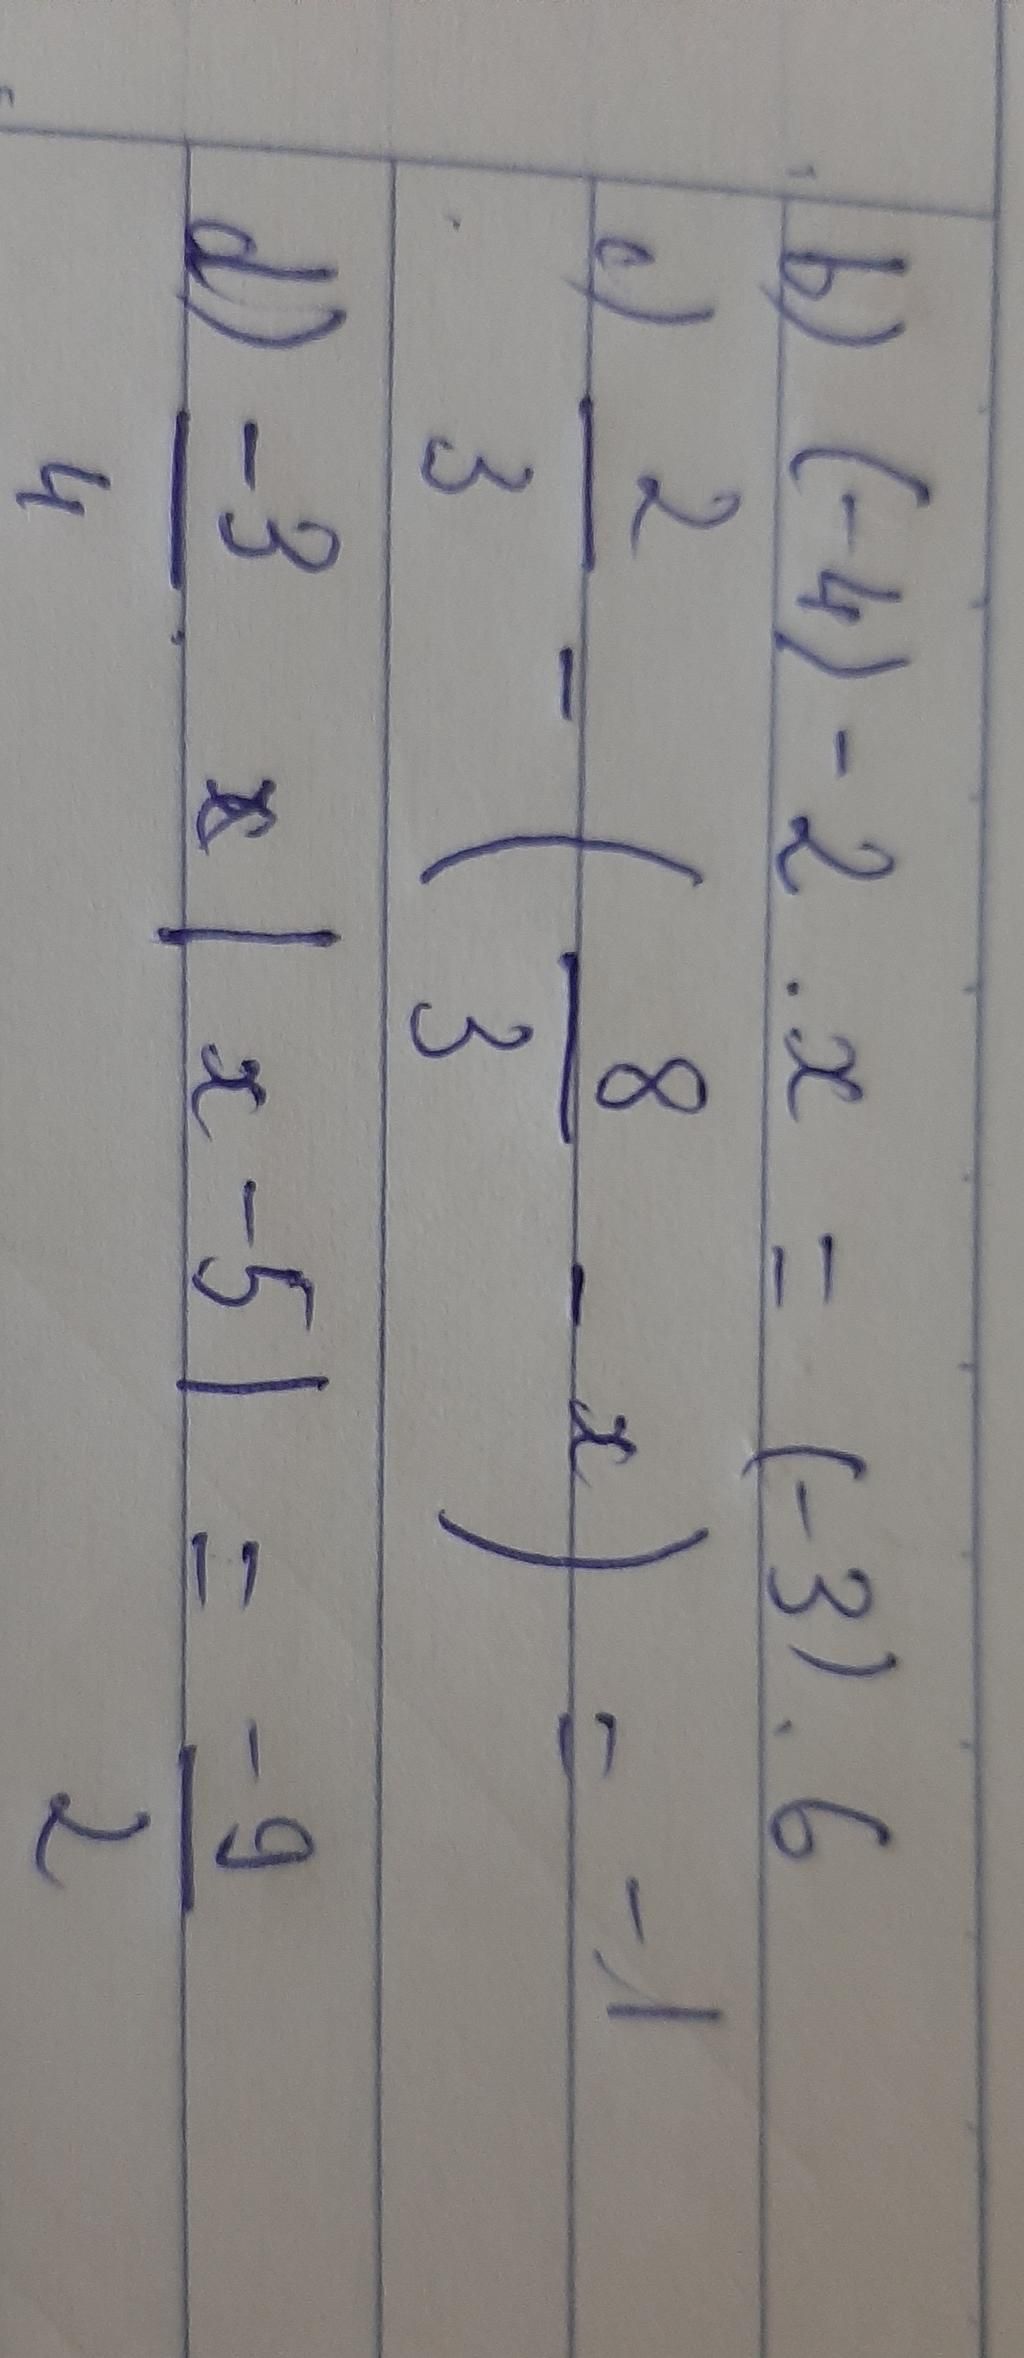 b) (-4) - 2 . x = (-3) . 6
c) 2/3 - (8/3 - x) = -1
d) -3/4 x |x - 5| = -9/2